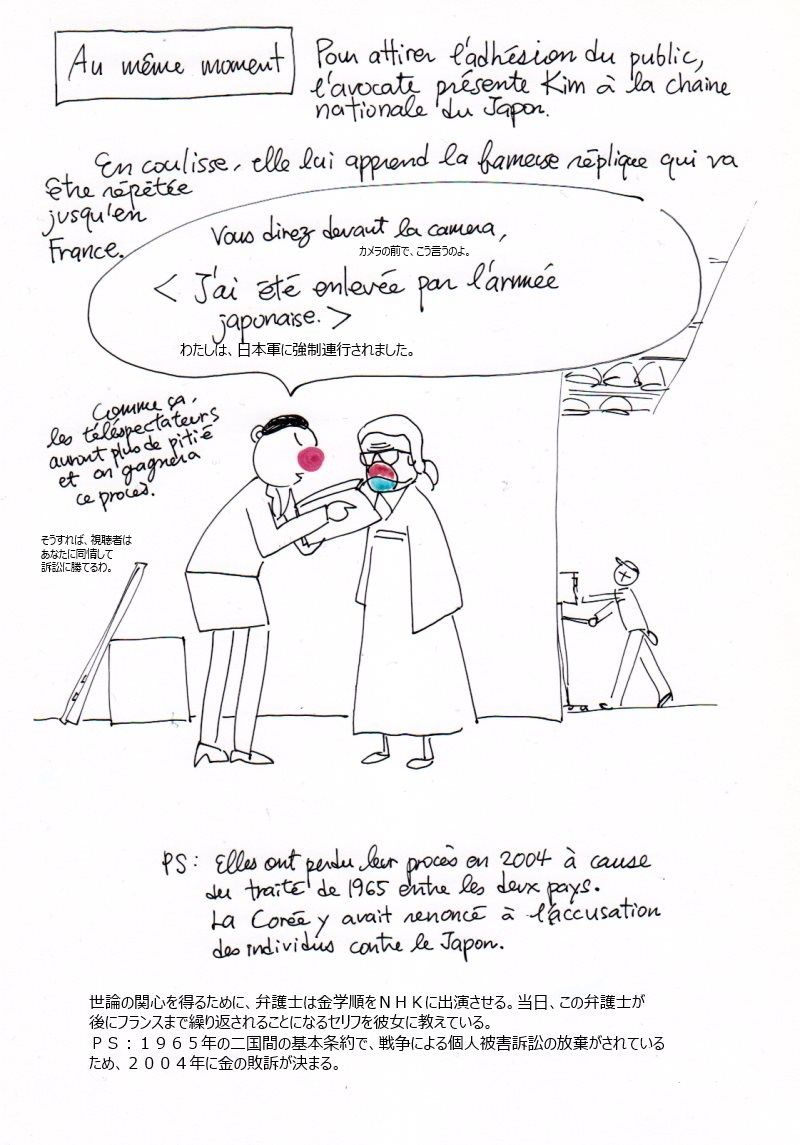 Au même moment
Pour attirer l'adhésion du public,
l'avocate présente Kim à la chaine
nationale du Japon.
En coulisse, elle lui apprend la fameuse réplique qui va
être répétée
jusqu'en
France.
Vous direz devant la camera,
カメラの前で、こう言うのよ。
< J'ai été enlevée par l'armée
japonaise. >
わたしは、日本軍に強制連行されました。
Comme ça,
les téléspectateurs
auront plus de pitié
et on gagnera
ce procès.
そうすれば、視聴者は
あなたに同情して
訴訟に勝てるわ。
PS: Elles ont perdu leur procès en 2004 à cause
du traité de 1965 entre les deux pays.
La Corée y avait renoncé à l'accusation
des individus contre le Japon.
世論の関心を得るために、弁護士は金学順をＮＨＫに出演させる。当日、この弁護士が
後にフランスまで繰り返されることになるセリフを彼女に教えている。
ＰＳ：１９６５年の二国間の基本条約で、戦争による個人被害訴訟の放棄がされている
ため、２００４年に金の敗訴が決まる。